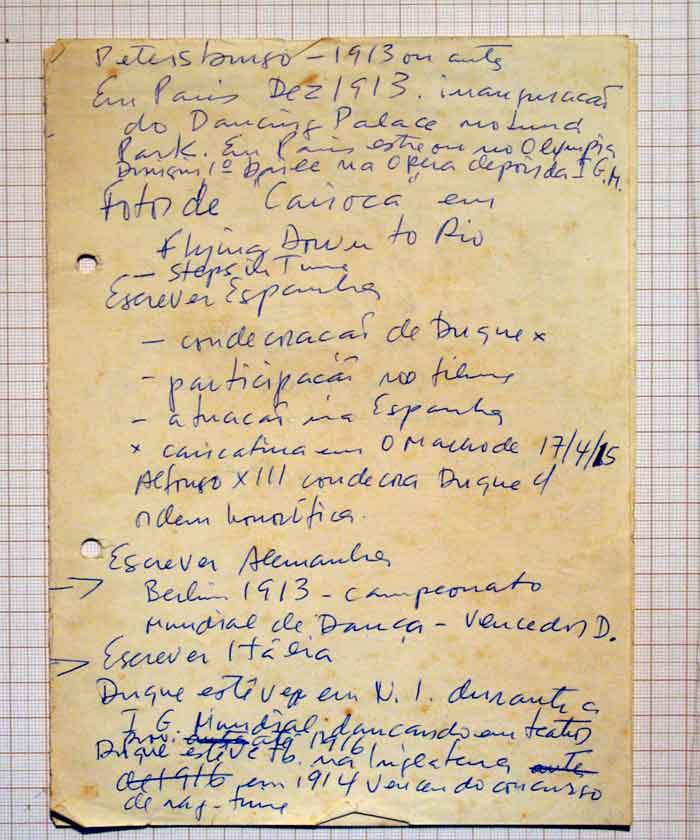 Petersburgo – 1913 ou antes
Em Paris Dez 1913. inauguração
do Dancing Palace no Luna
Park. Em Paris estreou no Olympia
1º na Opera depois da I G.M.
Fotos de "Carioca" em
Flying Down to Rio
– Steps in Time
Escrever Espanha
– condecoração de Duque x
– participação no filme
– atuação na Espanha
x caricatura em O Macho de 17/4/15
Alfonso XIII condecora Duque c/
ordem honorífica.
Escrever Alemanha
Berlim 1913 – campeonato
Mundial de Dança – Vencedor D.
Escrever Itália
Duque estêve em N.I. durante a
I G. Mundial, dançando em teatros
até 1916
Duque estêve tb. na Inglaterra ante
de 1916 em 1914 vencendo concurso
de rag-time